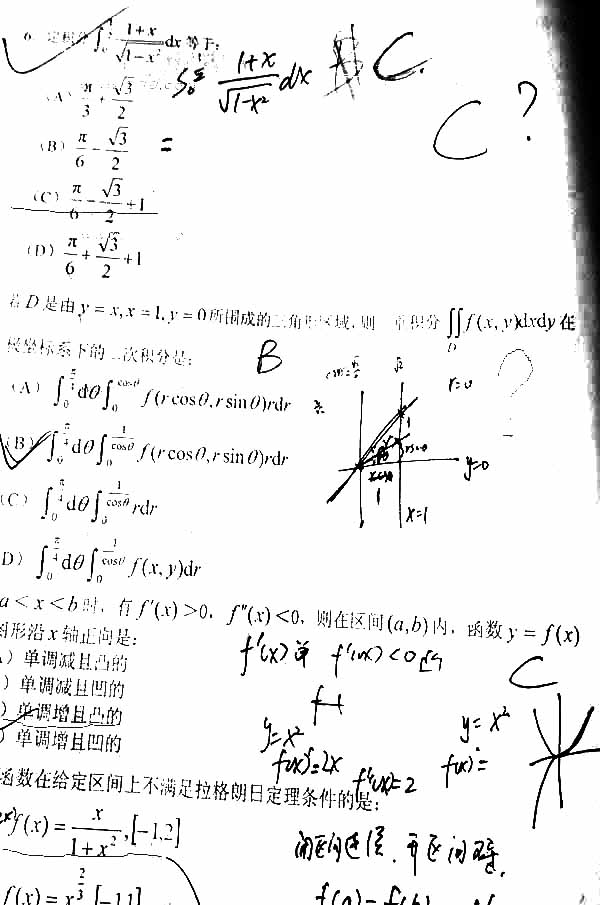 6. 定积分 \int_0^{\frac{1}{2}} \frac{1+x}{\sqrt{1-x^2}} dx 等于:
\int_0^{\frac{1}{2}} \frac{1+x}{\sqrt{1-x^2}} dx C.
(A) \frac{π}{3} + \frac{\sqrt{3}}{2}
C ?
(B) \frac{π}{6} - \frac{\sqrt{3}}{2} =
(C) \frac{π}{6} - \frac{\sqrt{3}}{2} + 1
(D) \frac{π}{6} + \frac{\sqrt{3}}{2} + 1
若 D 是由 y = x, x = 1, y = 0 所围成的三角形区域, 则二重积分 \iint_D f(x, y)dxdy 在
极坐标系下的二次积分是: B
(A) \int_0^{\frac{π}{4}} dθ \int_0^{cosθ} f(r cosθ, r sinθ)rdr
(B) \int_0^{\frac{π}{4}} dθ \int_0^{\frac{1}{cosθ}} f(r cosθ, r sinθ)rdr
(C) \int_0^{\frac{π}{4}} dθ \int_0^{\frac{1}{cosθ}} rdr
D) \int_0^{\frac{π}{4}} dθ \int_0^{\frac{1}{cosθ}} f(x, y)dr
√2
r=0
y=0
1
x=1
a < x < b 时, 有 f'(x) > 0, f''(x) < 0, 则在区间 (a, b) 内, 函数 y = f(x)
图形沿 x 轴正向是:
f'(x) 单 f''(x) < 0 凸
C
) 单调减且凸的
) 单调减且凹的
) 单调增且凸的
) 单调增且凹的
y = x²
f'(x) = 2x f''(x) = 2
y = x²
f(x) =
函数在给定区间上不满足拉格朗日定理条件的是:
f(x) = \frac{x}{1+x^2}, [-1,2]
闭区间连续, 开区间可导,
f(x) = x^{\frac{2}{3}} [-1,1]
f(a) = f(b)